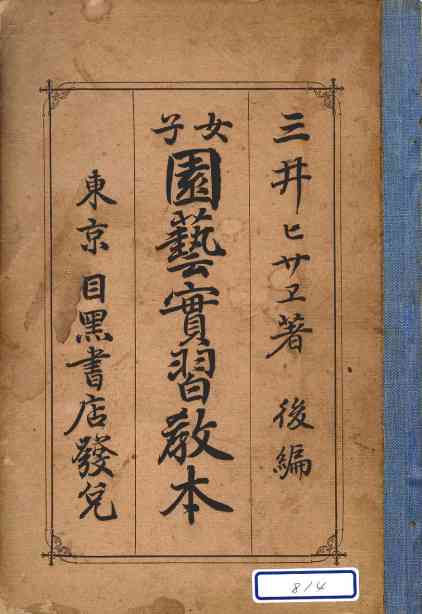 三井ヒサヱ著 後編
女子
園藝實習教本
東京 目黑書店發兌
814